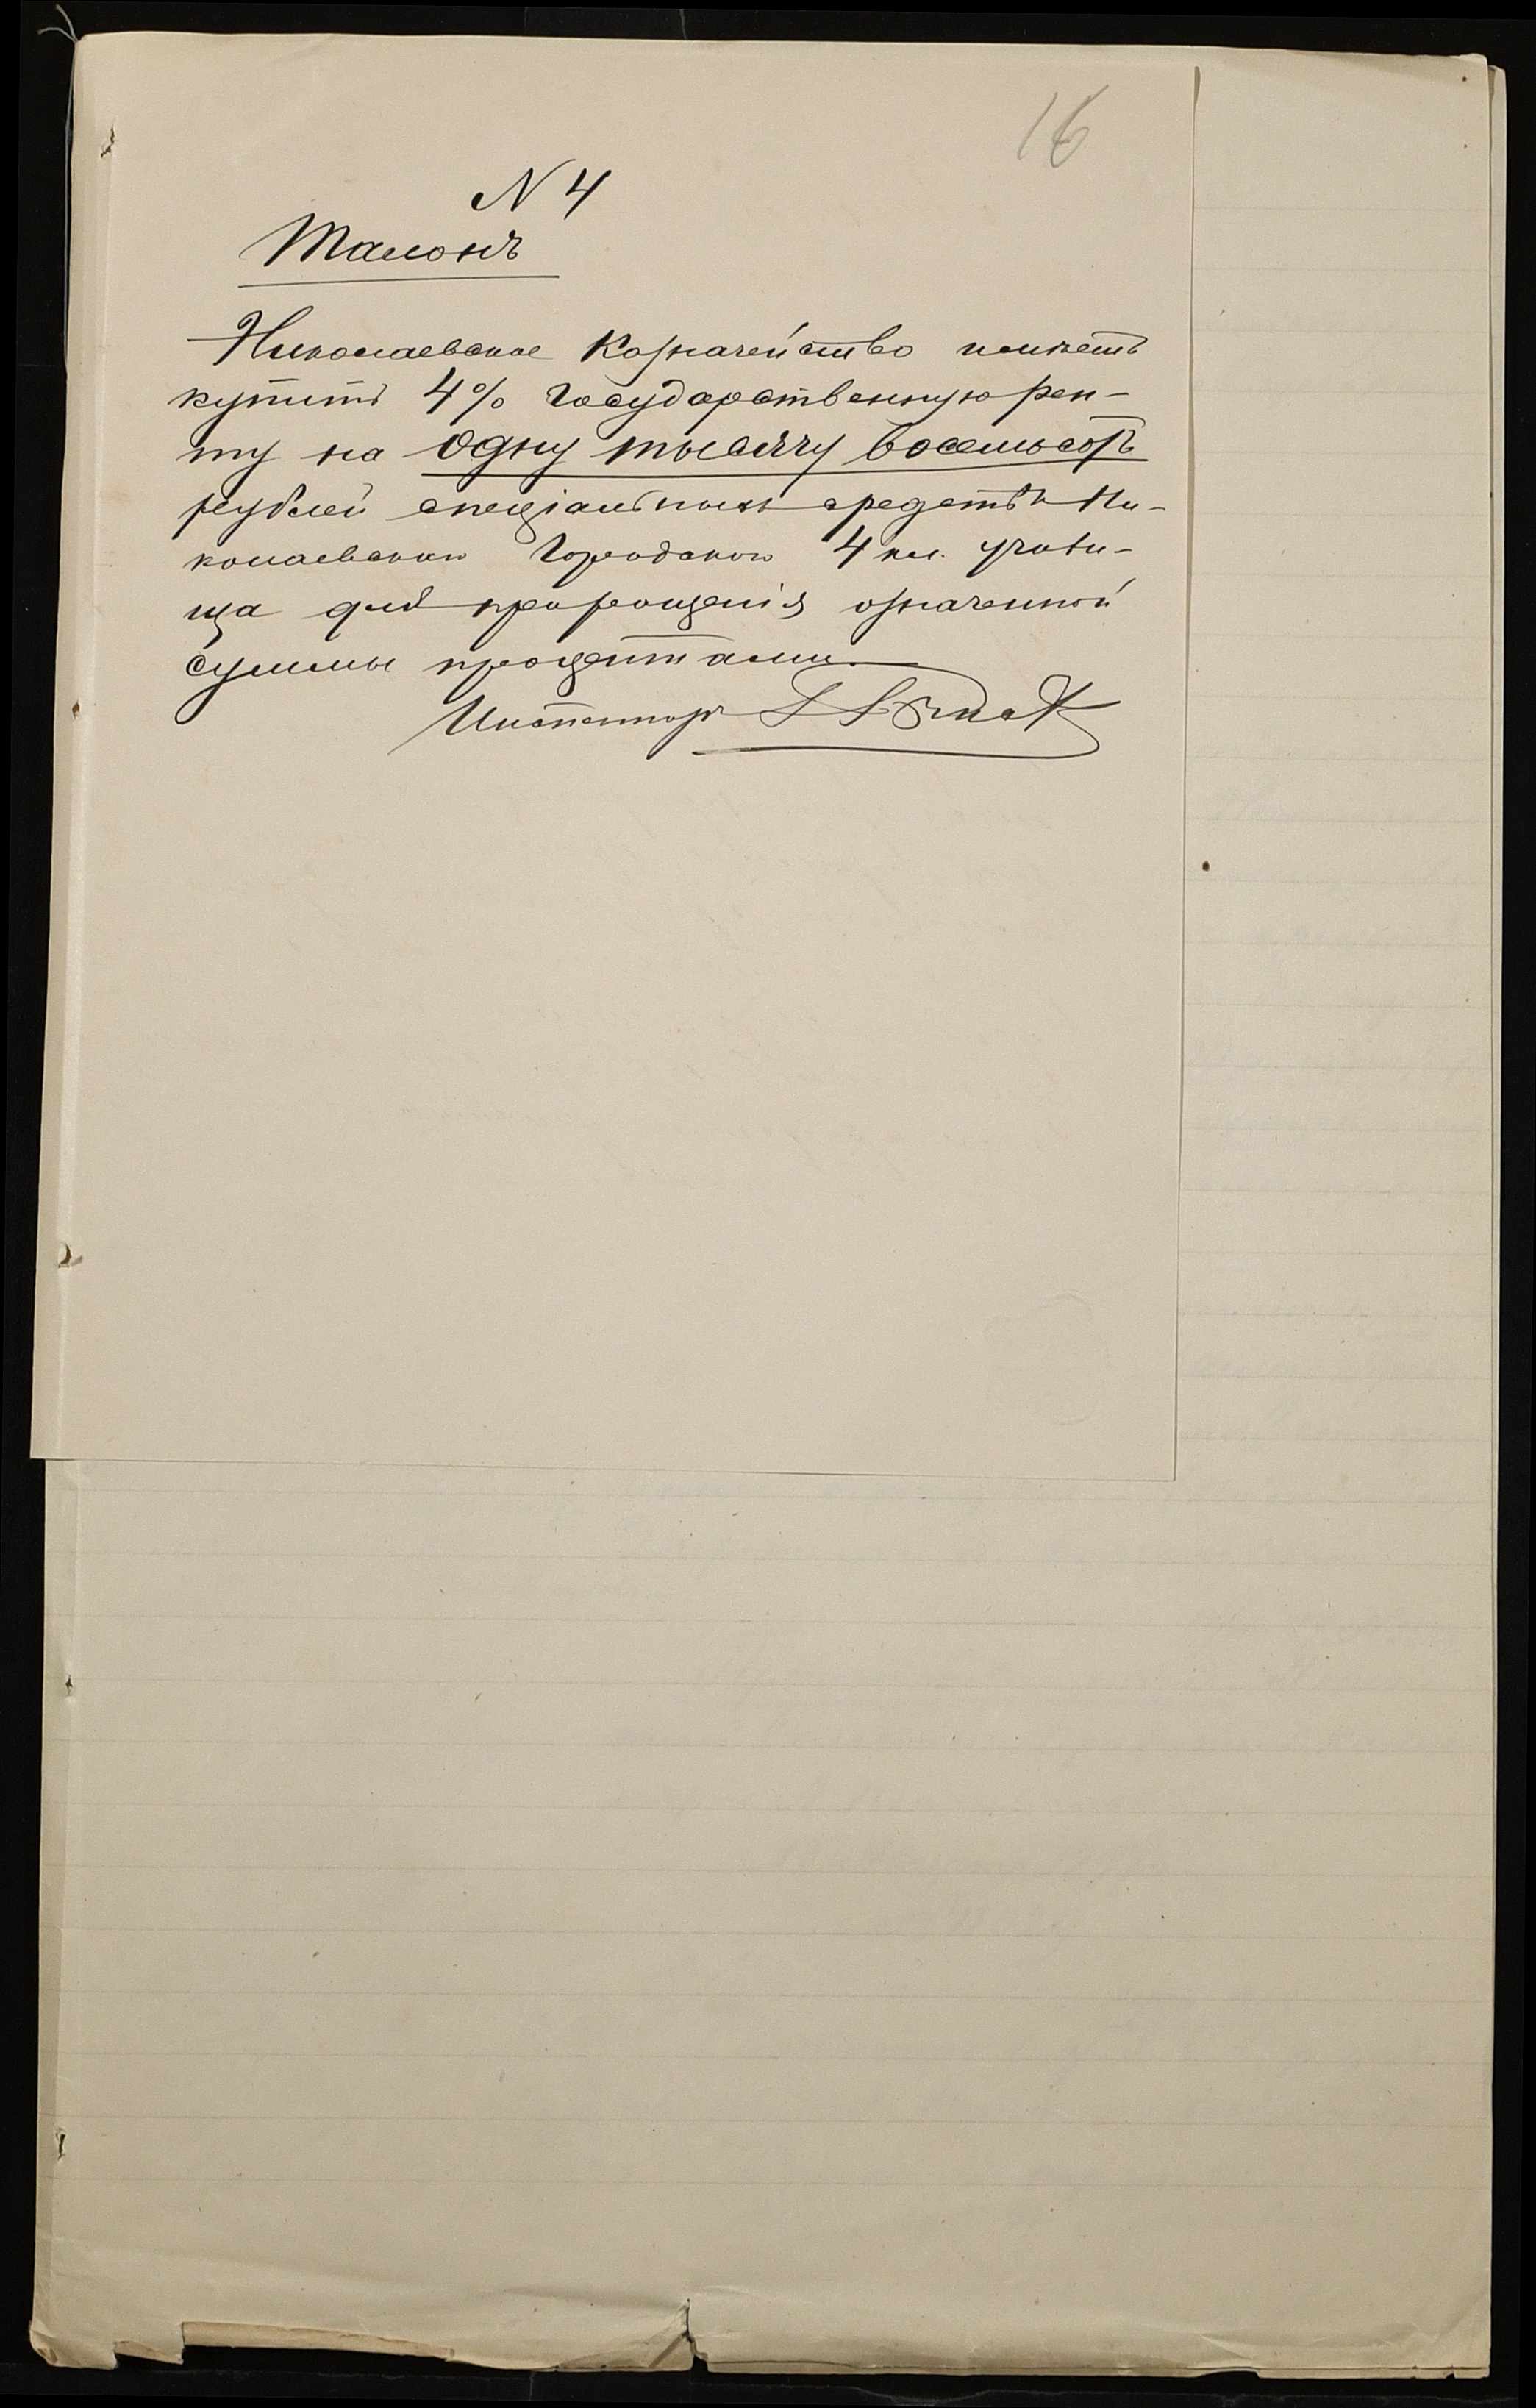 16
N 4
Талонъ
Николаевское Казначейство можетъ
купить 4% Государственную рен-
ту на одну тысячу восемьсотъ
рублей спеціальныхъ средствъ Ни-
колаевскаго Городского 4 кл. учили-
ща для приращенія означенной
суммы процентами.
Инспекторъ